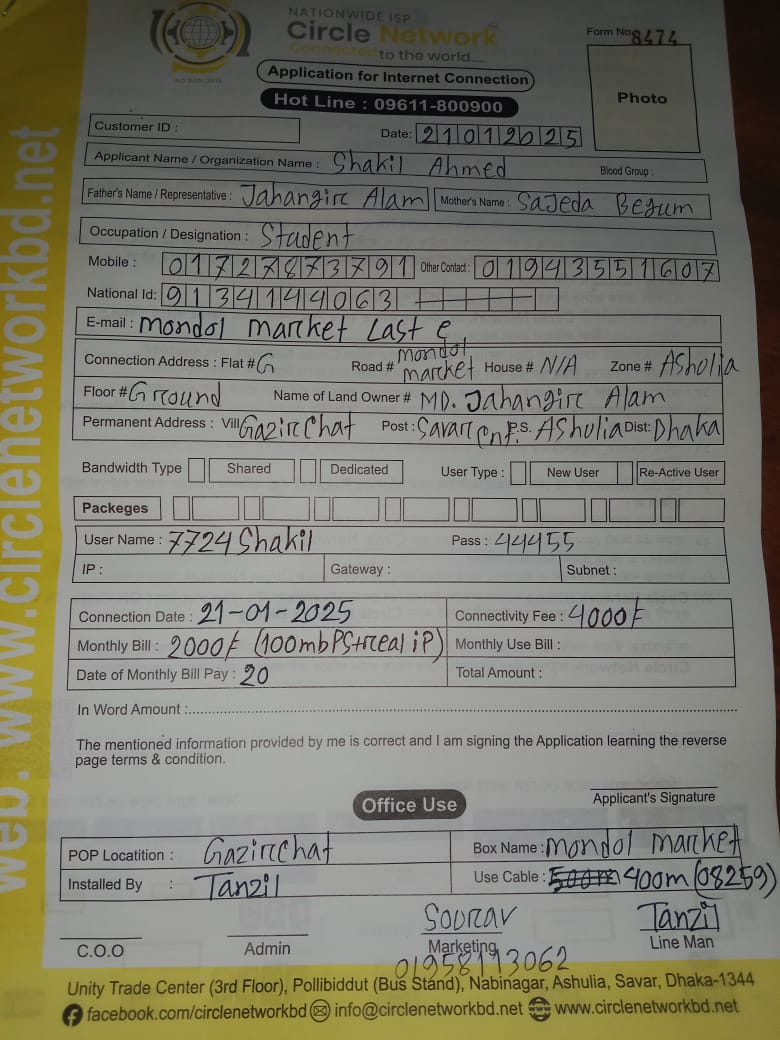 NATIONWIDE ISP
Circle Network
Connected to the world.....
ISO 9001:2015
Form No 8474
Application for Internet Connection
Hot Line : 09611-800900
Photo
Customer ID :
Date: 21012025
Applicant Name / Organization Name : Shakil Ahmed Blood Group :
Father's Name / Representative : Jahangir Alam Mother's Name : Sajeda Begum
Occupation / Designation : Student
Mobile : 01727873791 Other Contact : 01943551607
National Id: 9134144063
E-mail : mondol market Last
Connection Address : Flat # G Road # mondol market House # N/A Zone # Asholia
Floor # Ground Name of Land Owner # MD. Jahangir Alam
Permanent Address : Vill Gazirchat Post : Savar Cnt. P.S. Asholia Dist: Dhaka
Bandwidth Type Shared Dedicated User Type : New User Re-Active User
Packeges
User Name : 7724 Shakil Pass : 44455
IP : Gateway : Subnet :
Connection Date : 21-01-2025 Connectivity Fee : 4000/-
Monthly Bill : 2000/- (100mbPS+real iP) Monthly Use Bill :
Date of Monthly Bill Pay : 20 Total Amount :
In Word Amount :
The mentioned information provided by me is correct and I am signing the Application learning the reverse
page terms & condition.
Applicant's Signature
Office Use
POP Locatition : Gazirchat Box Name : mondol market
Installed By : Tanzil Use Cable : 400m (08259)
Sourav Tanzil
C.O.O Admin Marketing Line Man
01958193062
Unity Trade Center (3rd Floor), Pollibiddut (Bus Stand), Nabinagar, Ashulia, Savar, Dhaka-1344
facebook.com/circlenetworkbd info@circlenetworkbd.net www.circlenetworkbd.net
web: www.circlenetworkbd.net